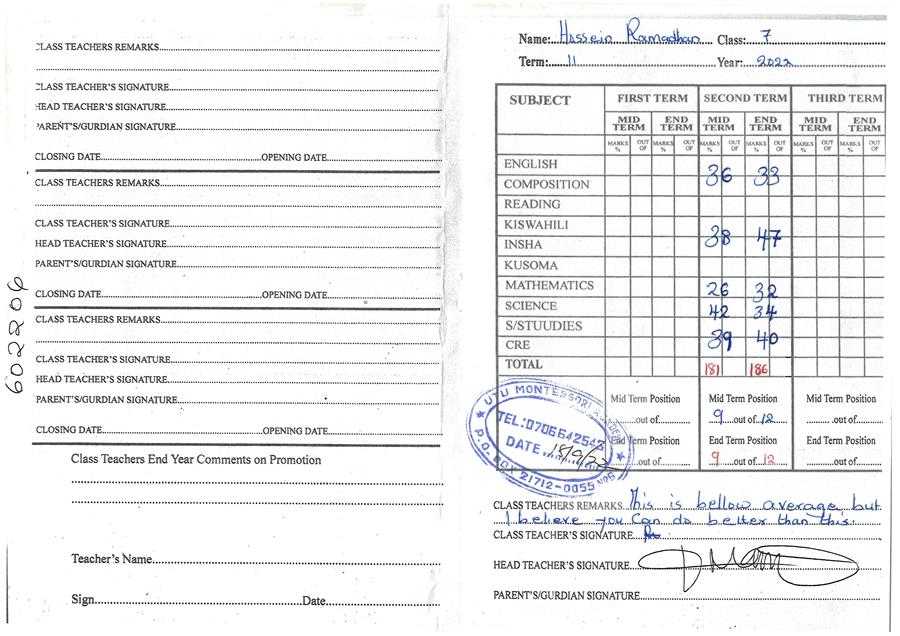 CLASS TEACHERS REMARKS
CLASS TEACHER'S SIGNATURE
HEAD TEACHER'S SIGNATURE
PARENT'S/GURDIAN SIGNATURE
CLOSING DATE OPENING DATE
CLASS TEACHERS REMARKS
CLASS TEACHER'S SIGNATURE
HEAD TEACHER'S SIGNATURE
PARENT'S/GURDIAN SIGNATURE
CLOSING DATE OPENING DATE
CLASS TEACHERS REMARKS
CLASS TEACHER'S SIGNATURE
HEAD TEACHER'S SIGNATURE
PARENT'S/GURDIAN SIGNATURE
CLOSING DATE OPENING DATE
602206
Class Teachers End Year Comments on Promotion
Teacher's Name
Sign Date
Name: Hossein Ramadhan Class: 7
Term: 11 Year: 2022
SUBJECT FIRST TERM SECOND TERM THIRD TERM
MID TERM END TERM MID TERM END TERM MID TERM END TERM
MARKS % OUT OF MARKS % OUT OF MARKS % OUT OF MARKS % OUT OF MARKS % OUT OF MARKS % OUT OF
ENGLISH
COMPOSITION 36 33
READING
KISWAHILI
INSHA 38 47
KUSOMA
MATHEMATICS 26 32
SCIENCE 42 34
S/STUUDIES
CRE 39 40
TOTAL 181 186
Mid Term Position Mid Term Position Mid Term Position
out of 9 out of 12 out of
End Term Position End Term Position End Term Position
out of 9 out of 12 out of
UTU MONTESSORI
TEL: 0706642543
DATE 15/9/22
P.O. BOX 21712-0055
CLASS TEACHERS REMARKS This is bellow average but
I believe you Can do better than this.
CLASS TEACHER'S SIGNATURE
HEAD TEACHER'S SIGNATURE
PARENT'S/GURDIAN SIGNATURE